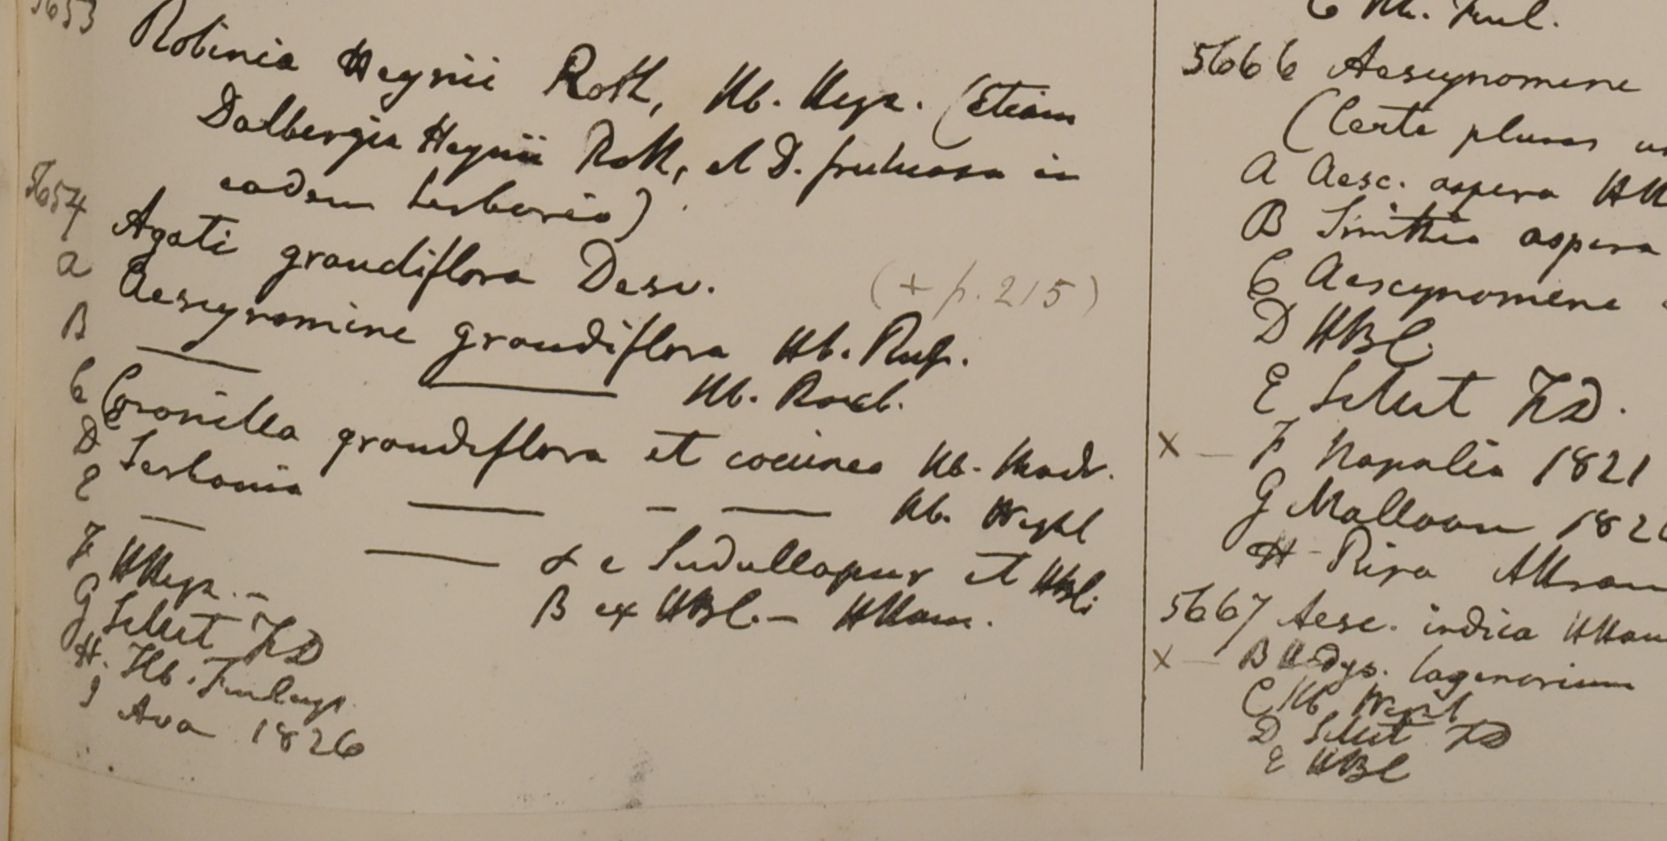 5653 Robinia Heynii Roth, Hb. Heyn. (Etiam
Dalbergia Heynii Roth, et D. fruticosa in
eodem herbario)
5654 Agati grandiflora Desv.
(+ p. 215)
a Aescynomine grandiflora Hb. Russ.
B — — Hb. Roxb.
C Coronilla grandiflora et coccinea Hb. Madr.
D Sesbania — – — Hb. Wight
E — — α e Sudullapur et HBl.
β ex HBl. – HHam.
F HHeyn. –
G Seluit FD
H. Hb. Finlays.
I Ava 1826
C Hb. Finl.
5666 Aescynomene
(Certe plures
A Aesc. aspera HH
B Smithia aspera
C Aescynomene
D HBC.
E Seluit FD.
X – F Napalia 1821
G Maltoon 182
H – Ripa
5667 Aesc. indica HHam
X – B Hedys. lagenarium
C Hb. Wight
D Seluit FD
E HBC